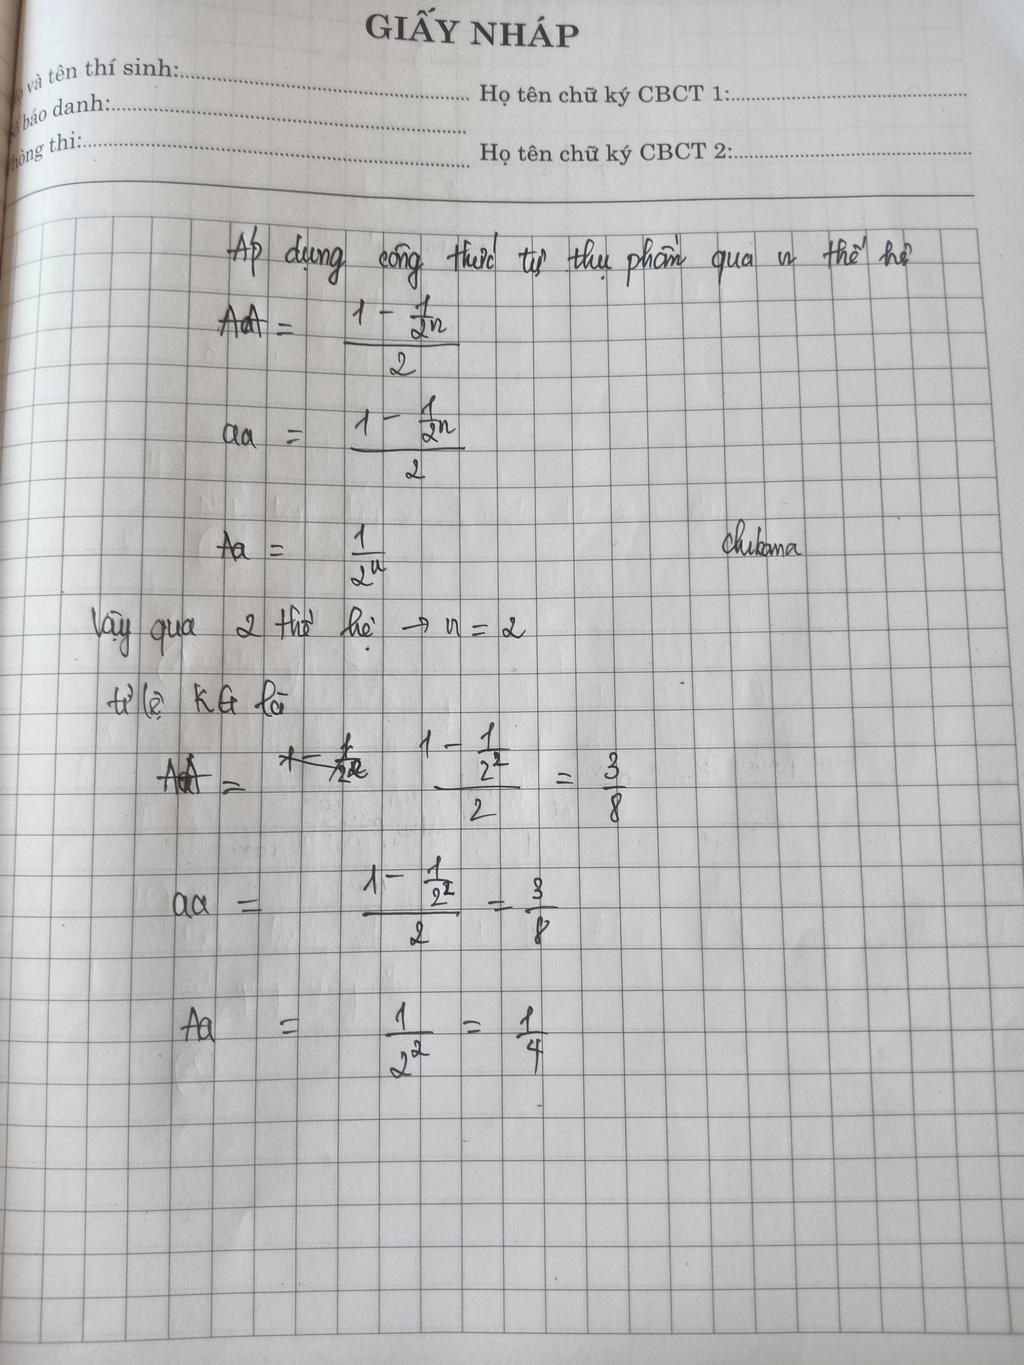 GIẤY NHÁP
và tên thí sinh:
Họ tên chữ ký CBCT 1:
báo danh:
thi:
Họ tên chữ ký CBCT 2:
Áp dụng công thức tự thụ phấn qua n thế hệ
AA = (1 - 1/2^n)/2
aa = (1 - 1/2^n)/2
Aa = 1/2^n
chikama
Vậy qua 2 thế hệ → n = 2
tỉ lệ KG là
AA = (1 - 1/2^2)/2 = 3/8
aa = (1 - 1/2^2)/2 = 3/8
Aa = 1/2^2 = 1/4